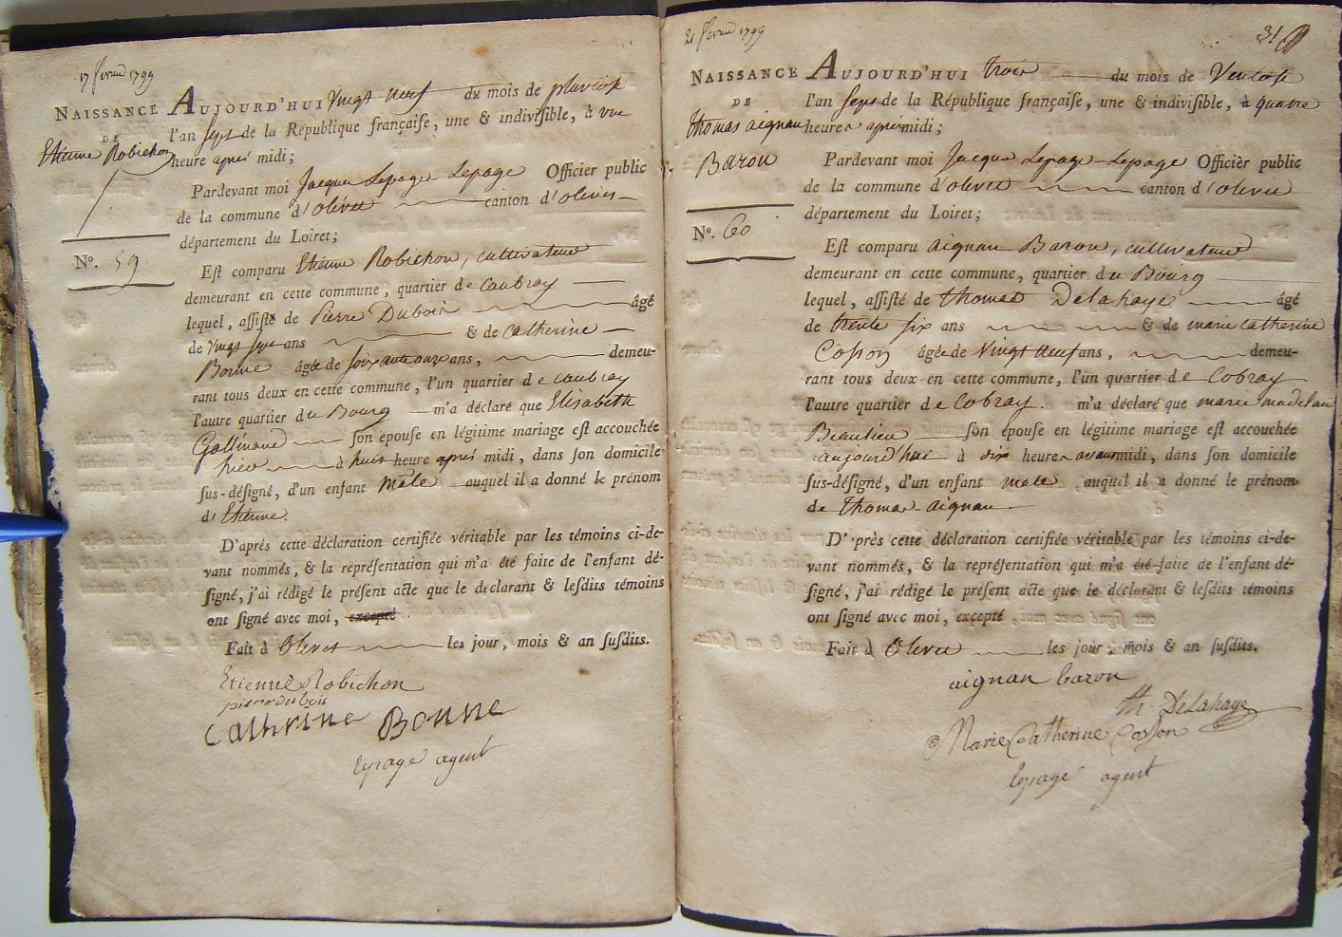 17 février 1799
NAISSANCE
DE
Etienne Robichon
N°. 59
AUJOURD'HUI vingt neuf du mois de pluviose
l'an sept de la République françaiſe, une & indiviſible, à une
heure après midi;
Pardevant moi Jacque Lepage Lepage Officier public
de la commune d'olivet canton d'olivet
département du Loiret;
Eſt comparu Etienne Robichon, cultivateur
demeurant en cette commune, quartier de Caubray
lequel, aſſiſté de Pierre Dubois âgé
de vingt sept ans & de Catherine
Bonne âgée de soixante onze ans, demeu-
rant tous deux en cette commune, l'un quartier de caubray
l'autre quartier du Bourg m'a déclaré que Elisabeth
Gallinand ſon épouſe en légitime mariage eſt accouchée
hier à huit heure après midi, dans ſon domicile
ſus-déſigné, d'un enfant mâle auquel il a donné le prénom
d'Etienne.
D'après cette déclaration certifiée véritable par les témoins ci-de-
vant nommés, & la repréſentation qui m'a été faite de l'enfant dé-
ſigné, j'ai rédigé le préſent acte que le déclarant & leſdits témoins
ont ſigné avec moi, excepté
Fait à Olivet les jour, mois & an ſuſdits.
Etienne Robichon
pierre dubois
Catherine Bonne
lepage agent
21 février 1799
31
NAISSANCE
DE
thomas aignan
Baron
N°. 60
AUJOURD'HUI trois du mois de Ventose
l'an sept de la République françaiſe, une & indiviſible, à quatre
heures après midi;
Pardevant moi Jacque Lepage Lepage Officier public
de la commune d'olivet canton d'olivet
département du Loiret;
Eſt comparu aignan Baron, cultivateur
demeurant en cette commune, quartier du Bourg
lequel, aſſiſté de thomas Delahaye âgé
de trente six ans & de marie catherine
Cosson âgée de vingt neuf ans, demeu-
rant tous deux en cette commune, l'un quartier de Cobray
l'autre quartier de Cobray. m'a déclaré que marie madelaine
Beaulieu ſon épouſe en légitime mariage eſt accouchée
aujourd'hui à dix heures avant midi, dans ſon domicile
ſus-déſigné, d'un enfant male auquel il a donné le prénom
de thomas aignan
D'après cette déclaration certifiée véritable par les témoins ci-de-
vant nommés, & la repréſentation qui m'a été faite de l'enfant dé-
ſigné, j'ai rédigé le préſent acte que le déclarant & leſdits témoins
ont ſigné avec moi, excepté
Fait à Olivet les jour, mois & an ſuſdits.
aignan baron
th. DeLahaye
Marie Catherine Cosson
lepage agent